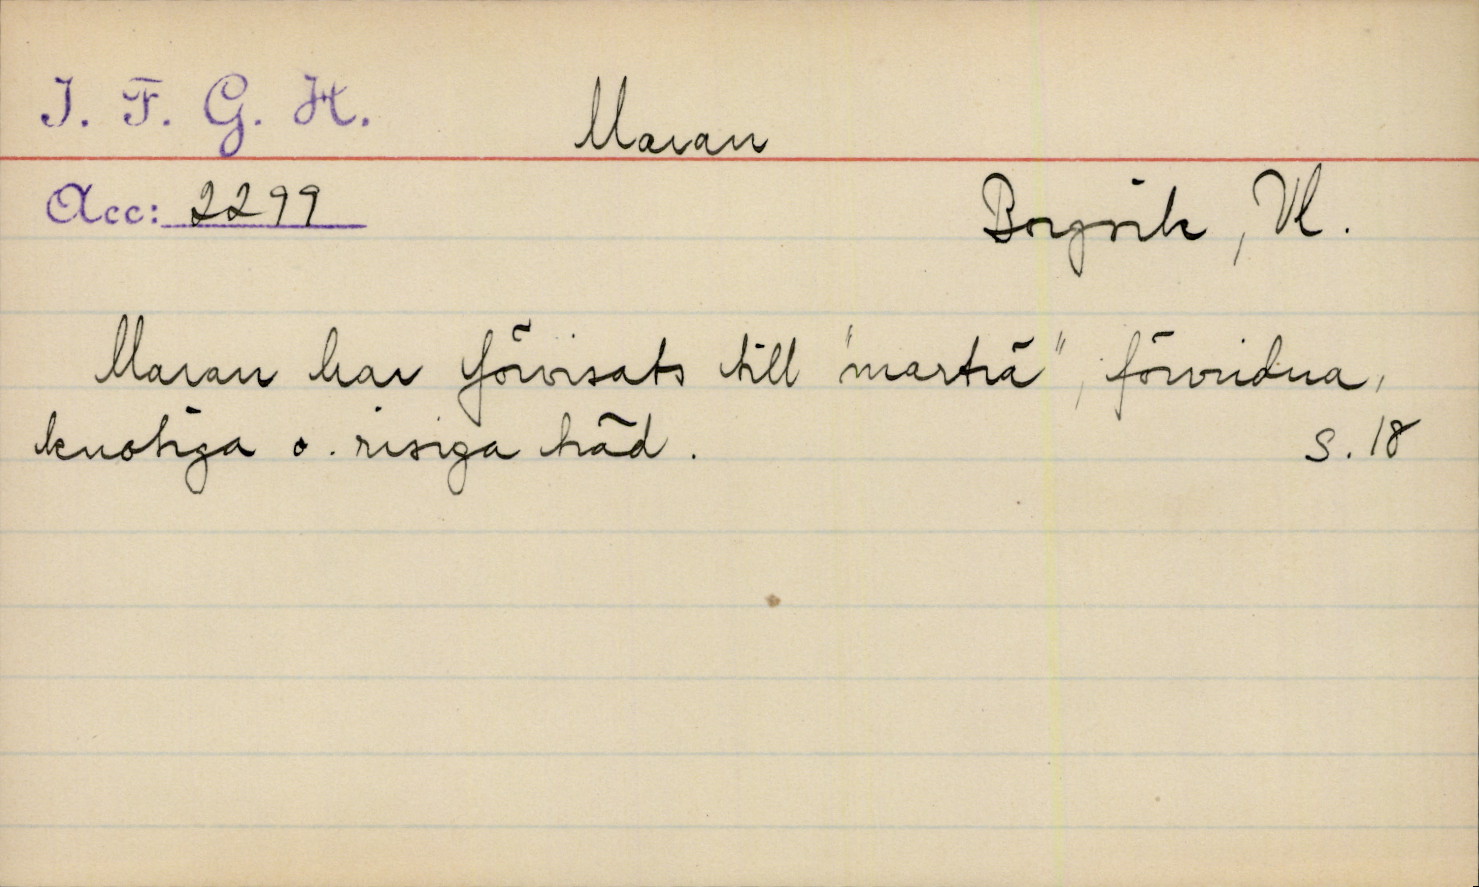 I. F. G. H.
Maran
Acc: 2299
Borgvik, Vl.
Maran har förvisats till "marträ", förvridna,
knotiga o. risiga träd. S. 18